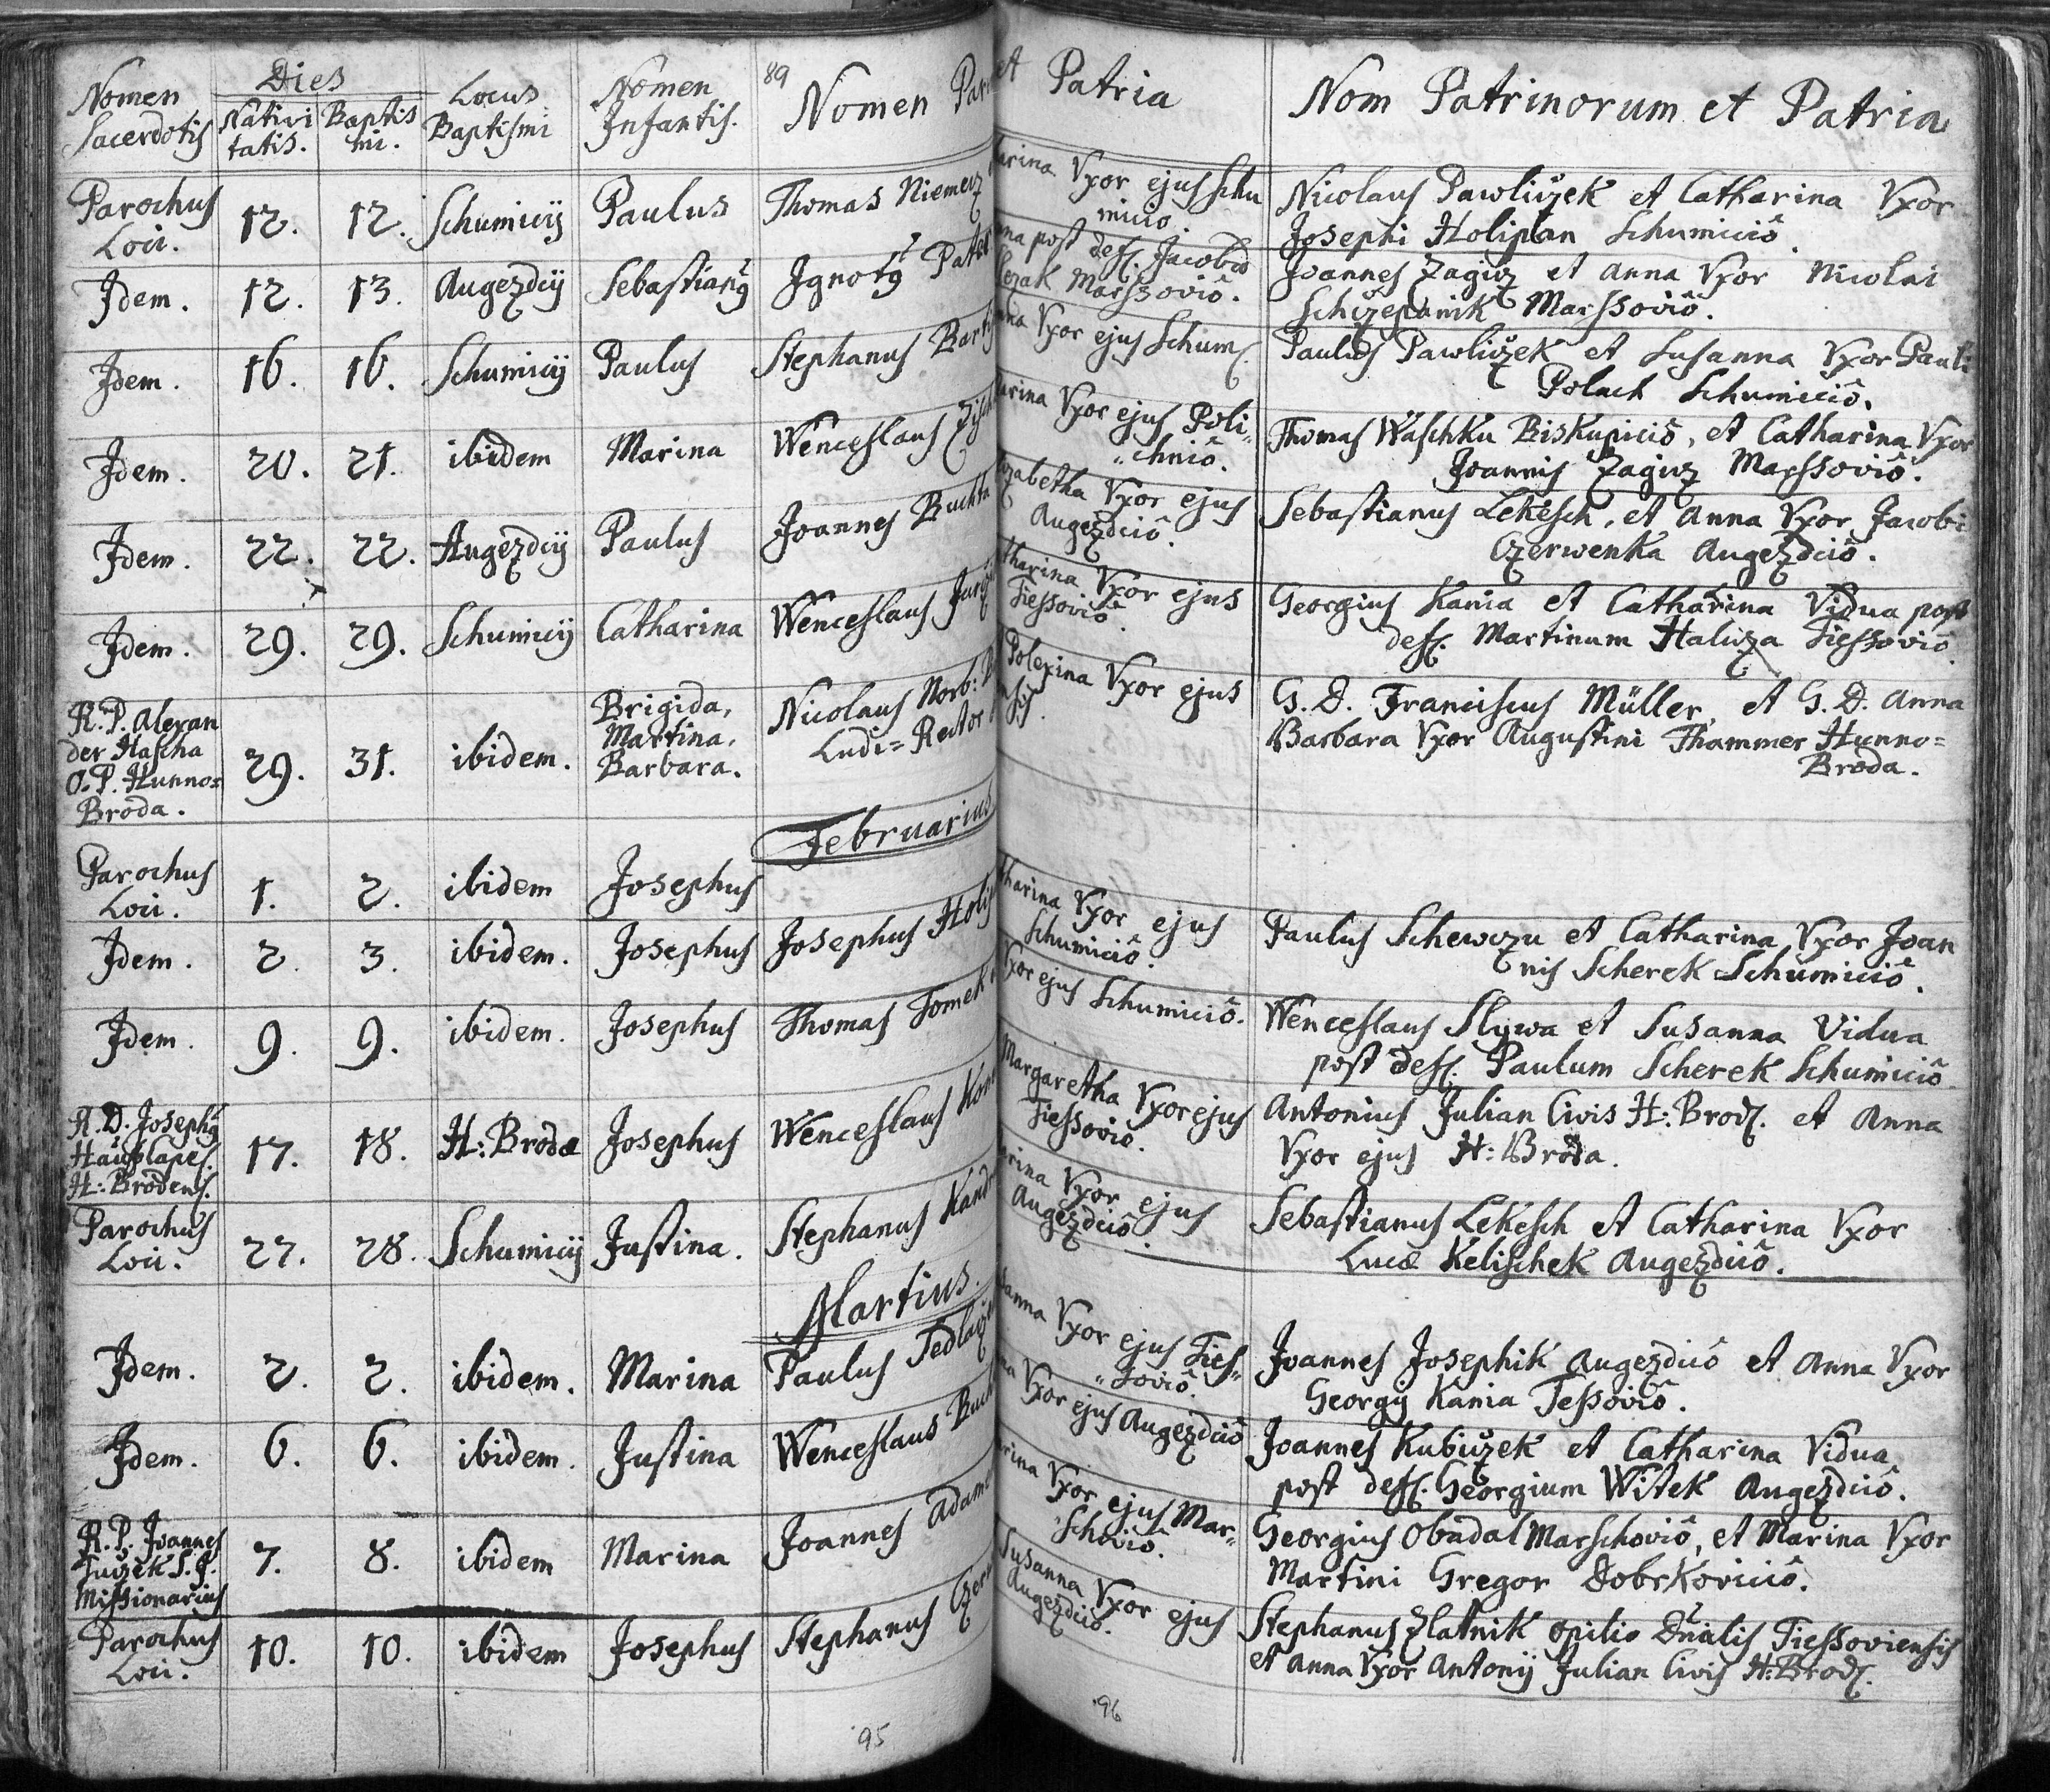 89
Nomen Sacerdotis
Dies
Nativi tatis.
Baptis mi.
Locus Baptismi
Nomen Infantis.
Nomen
et Patria
Nom Patrinorum et Patria
Parochus Loci. 12. 12. Schumicij Paulus Thomas Niemecz
Vxor ejus Schu
micio.
Nicolaus Pawliczek et Catharina Vxor
Josephi Holiplan Schumiciô.
Jdem. 12. 13. Augezdcij Sebastiang Jgnotg
post def. Jacobũ
Marssoviô.
Joannes Zagicz et Anna Vxor Nicolai
Schczepanik Marssoviô.
Jdem. 16. 16. Schumicij Paulus Stephanus
Vxor ejus Schum.
Paulus Pawliczek et Susanna Vxor Pauli
Polach Schumiciô.
Jdem. 20. 21. ibidem Marina Wenceslaus
Vxor ejus Poli=
"chniô.
Thomas Waschku Biskupiciô, et Catharina Vxor
Joannis Zagicz Marssoviô.
Jdem. 22. 22. Augezdcij Paulus Joannes Buchta
Vxor ejus
Augezdciô.
Sebastianus Lekesch, et Anna Vxor Jacobi
Czerwenka Augezdciô.
Jdem. 29. 29. Schumicij Catharina Wenceslaus
Vxor ejus
Tiessoviô.
Georgius Kania et Catharina Vidua post
def. Martinum Halucza Tiessoviô.
R. P. Alexan
der Hascha
O. P. Hunno=
Broda.
29. 31. ibidem.
Brigida,
Martina,
Barbara.
Nicolaus Norb:
Ludi=Rector
Polexina Vxor ejus
G. D. Franciscus Müller, et G. D. Anna
Barbara Vxor Augustini Thammer Hunno=
Broda.
Februarius
Parochus Loci. 1. 2. ibidem Josephus
Jdem. 2. 3. ibidem. Josephus Josephus
Vxor ejus
Schumiciô.
Paulus Schewczu et Catharina Vxor Joan
nis Scherek Schumiciô.
Jdem. 9. 9. ibidem. Josephus Thomas Tomek
Vxor ejus Schumiciô.
Wenceslaus Slywa et Susanna Vidua
post def. Paulum Scherek Schumiciô
R. D. Josephg
H: Brodens.
17. 18. H: Brodæ Josephus Wenceslaus
Margaretha Vxor ejus
Tiessoviô.
Antonius Julian Civis H: Brod. et Anna
Vxor ejus H: Broda.
Parochus Loci. 27. 28. Schumicij Justina. Stephanus
Vxor ejus
Augezdciô.
Sebastianus Lekesch et Catharina Vxor
Lucæ Kelischek Augezdciô.
Martius.
Jdem. 2. 2. ibidem. Marina Paulus
Vxor ejus Ties="
"soviô.
Joannes Josephik Augezdciô et Anna Vxor
Georgij Kania Tessoviô.
Jdem. 6. 6. ibidem. Justina Wenceslaus
Vxor ejus Augezdciô
Joannes Kubiczek et Catharina Vidua
post def. Georgium Witek Augezdciô.
R. P. Joannes
S. J.
Missionarius
7. 8. ibidem Marina Joannes
Vxor ejus Mar=
Schoviô.
Georgius Obadal Marschoviô, et Marina Vxor
Martini Gregor Dobrkoviciô.
Parochus Loci. 10. 10. ibidem Josephus Stephanus
Susanna Vxor ejus
Augezdciô.
Stephanus Zlatnik opilio Dñalis Tiessoviensis
et Anna Vxor Antonij Julian Civis H: Brod.
95
96